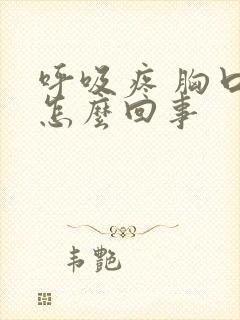 呼吸疼胸口
怎麼回事
韦艷